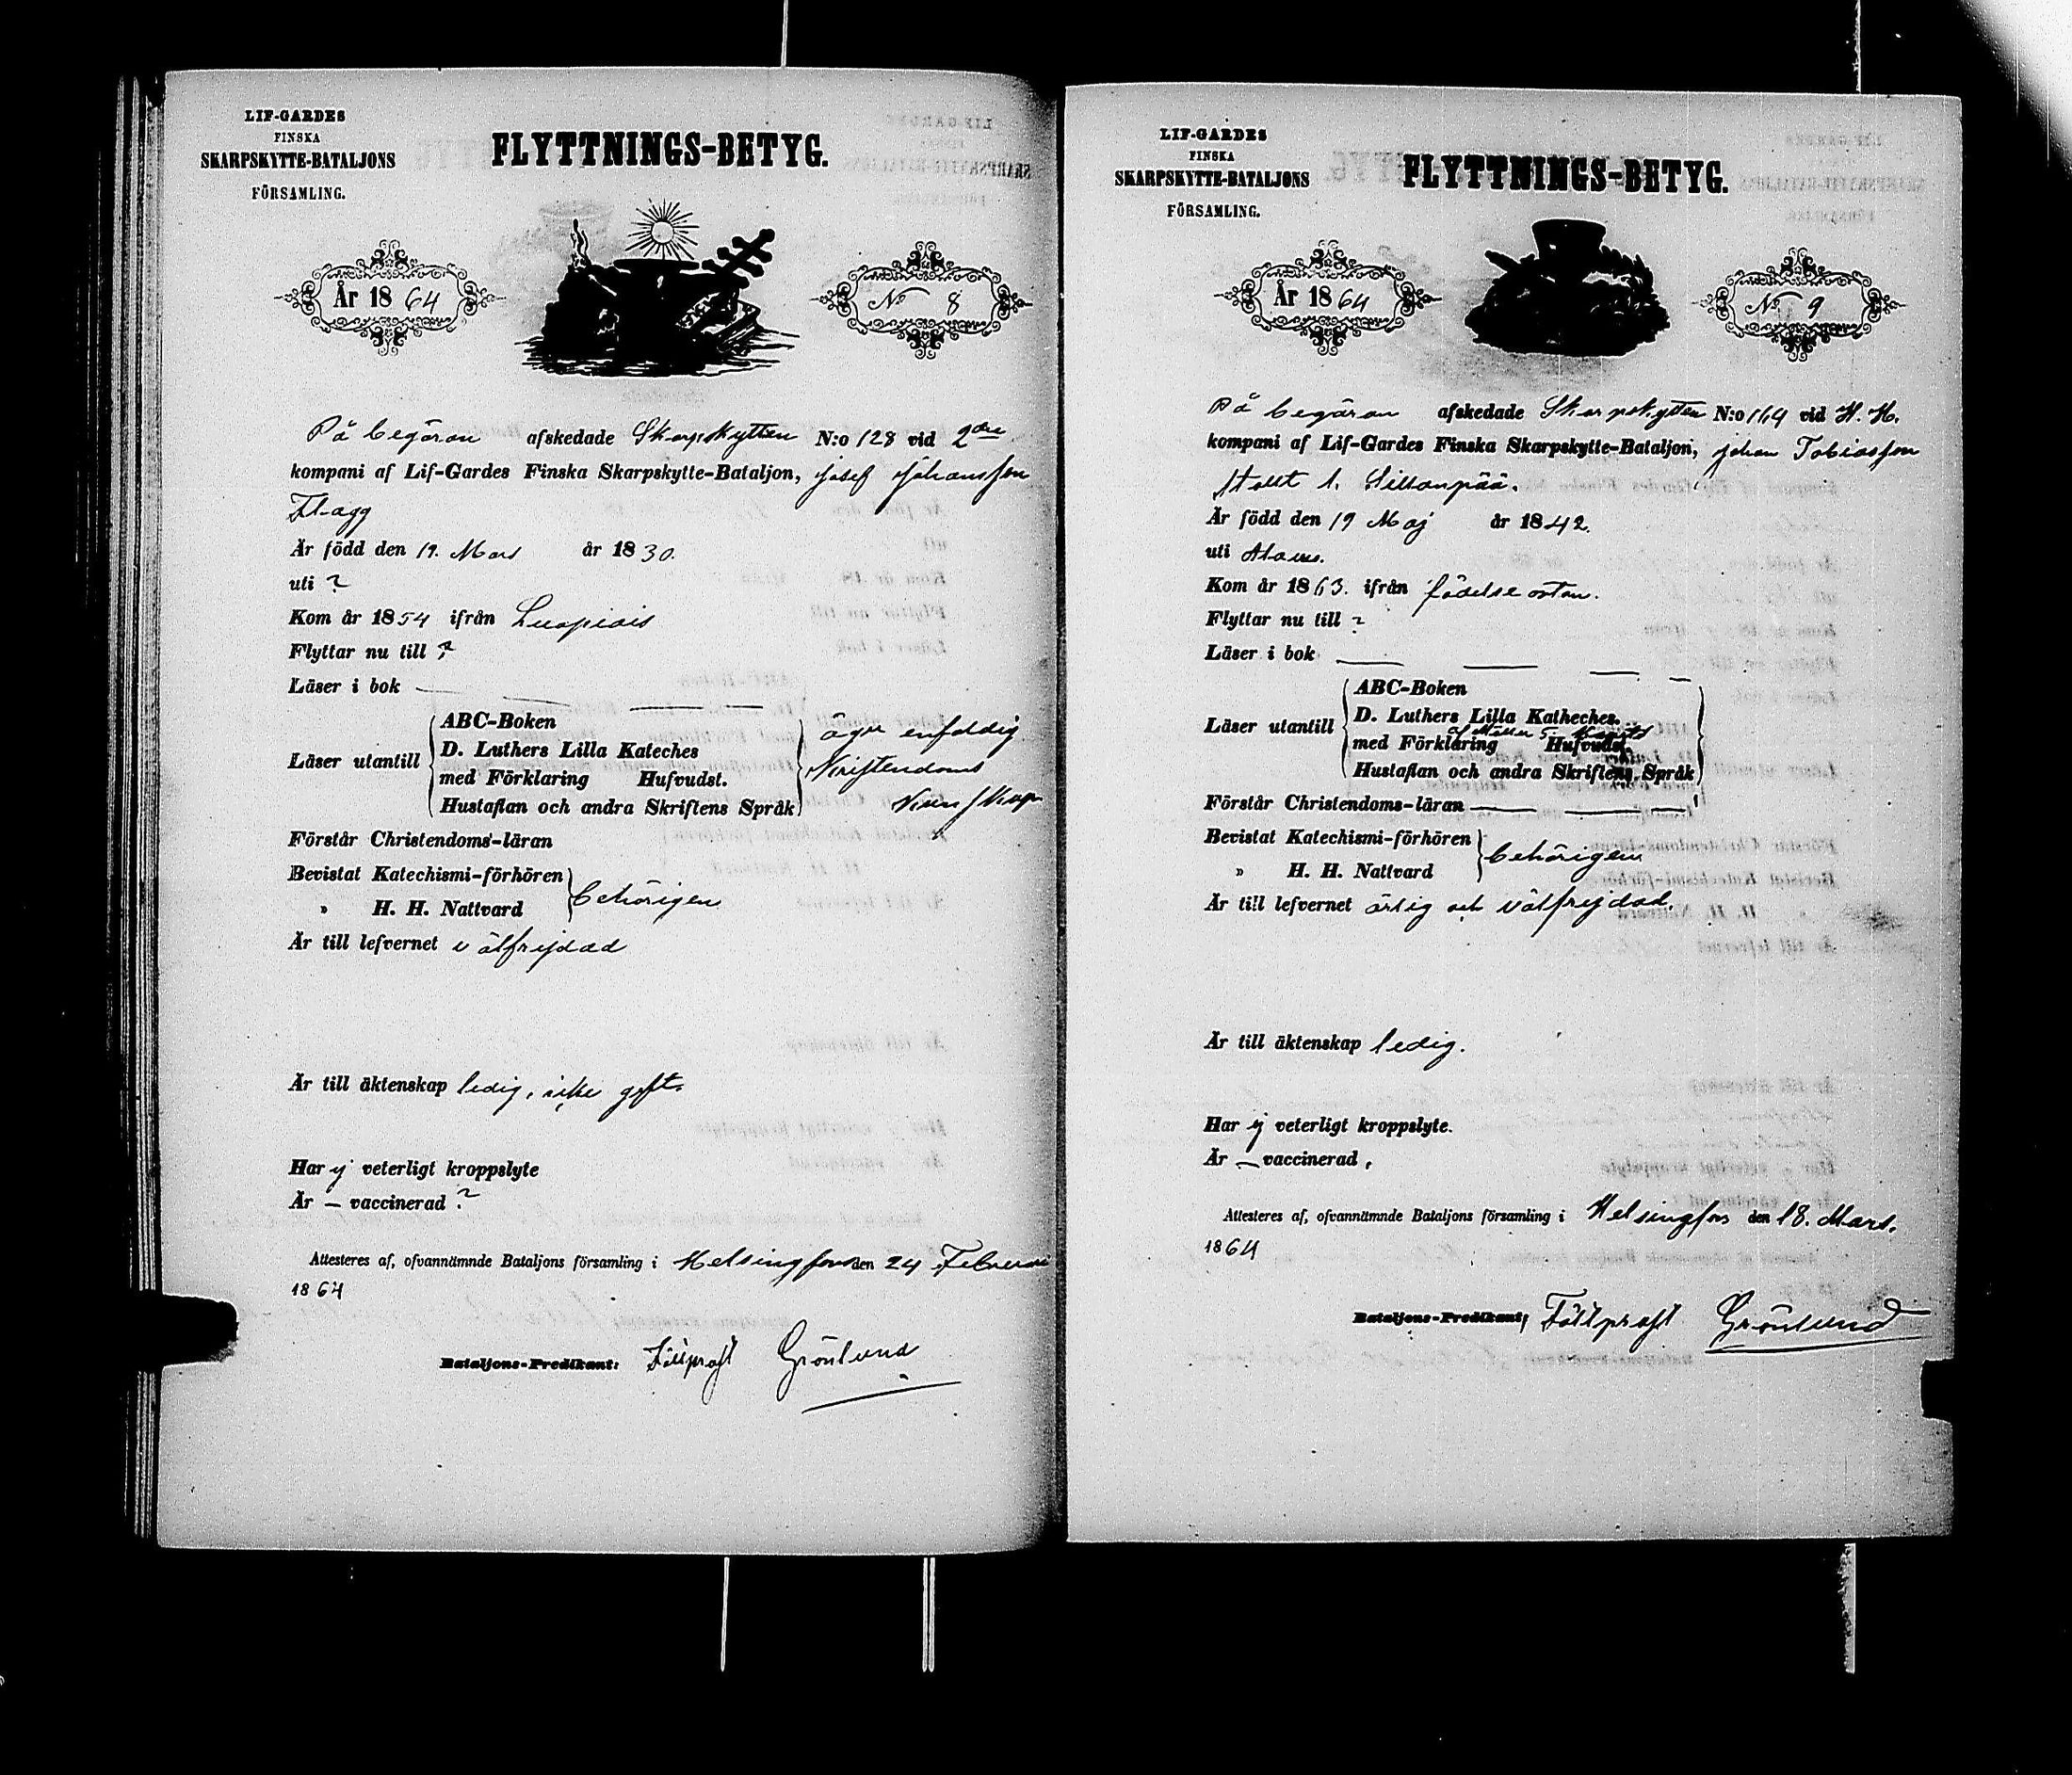 LIF-GARDES
FINSKA
SKARPSKYTTE-BATALJONS
FÖRSAMLING.
FLYTTNINGS-BETYG.
År 1864
No 8
På begäran afskedade Skarpskytten N:o 128 vid 2dra
kompani af Lif-Gardes Finska Skarpskytte-Bataljon, Josef Johansson
Flagg
Är född den 19. Mars år 1830.
uti ?
Kom år 1854 ifrån Luopiois
Flyttar nu till ?
Läser i bok — — —
Läser utantill
ABC-Boken
D. Luthers Lilla Kateches
med Förklaring Hufvudst.
Hustaflan och andra Skriftens Språk
äger enfaldig
Kristendoms
Kunskap
Förstår Christendoms-läran
Bevistat Katechismi-förhören
» H. H. Nattvard
behörigen
Är till lefvernet välfrejdad
Är till äktenskap ledig, icke gift.
Har ej veterligt kroppslyte
Är — vaccinerad ?
Attesteres af, ofvannämnde Bataljons församling i Helsingfors den 24 Februari
1864
Bataljons-Predikant: Fältprost Grönlund
LIF-GARDES
FINSKA
SKARPSKYTTE-BATALJONS
FÖRSAMLING.
FLYTTNINGS-BETYG.
År 1864
No 9
På begäran afskedade Skarpskytten N:o 164 vid H. H.
kompani af Lif-Gardes Finska Skarpskytte-Bataljon, Johan Tobiasson
Stolt l. Sillanpää.
Är född den 19 Maj år 1842.
uti
Kom år 1863. ifrån födelseorten.
Flyttar nu till ?
Läser i bok — — — —
Läser utantill
ABC-Boken
D. Luthers Lilla Katheches.
med Förklaring Hufvudst.
Hustaflan och andra Skriftens Språk
Förstår Christendoms-läran — — —
Bevistat Katechismi-förhören
» H. H. Nattvard
behörigen
Är till lefvernet ärlig och välfrejdad.
Är till äktenskap ledig.
Har ej veterligt kroppslyte.
Är — vaccinerad.
Attesteres af, ofvannämnde Bataljons församling i Helsingfors den 18. Mars.
1864
Bataljons-Predikant, Fältprost Grönlund